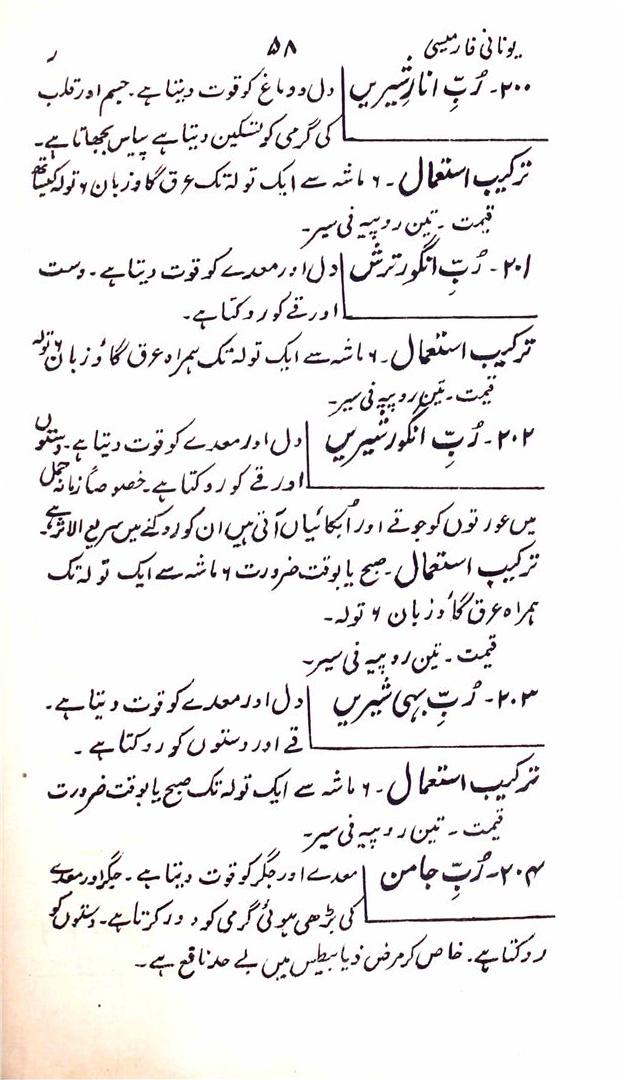 یونانی فارمیسی ۵۸ ر
۲۰۰۔ رُبِّ انارِشیریں دل و دماغ کو قوت دیتا ہے۔ جسم اور قلب
کی گرمی کو تسکین دیتا ہے پیاس بجھاتا ہے۔
ترکیب استعمال۔ ۶ ماشہ سے ایک تولہ تک عرق گاوزبان ۶ تولہ کیساتھ
قیمت۔ تین روپیہ فی سیر۔
۲۰۱۔ رُبِّ انگور ترش دل اور معدے کو قوت دیتا ہے۔ دست
اور قے کو روکتا ہے۔
ترکیب استعمال۔ ۶ ماشہ سے ایک تولہ تک ہمراہ عرق گاؤزبان ۶ تولہ
قیمت۔ تین روپیہ فی سیر۔
۲۰۲۔ رُبِّ انگور شیریں دل اور معدے کو قوت دیتا ہے۔ دستوں
اور قے کو روکتا ہے۔ خصوصاً زمانہ حمل
میں عورتوں کو جو قے اور اُبکائیاں آتی ہیں ان کو روکنے میں سریع الاثر ہے۔
ترکیب استعمال۔ صبح یا بوقت ضرورت ۶ ماشہ سے ایک تولہ تک
ہمراہ عرق گاؤزبان ۶ تولہ۔
قیمت۔ تین روپیہ فی سیر۔
۲۰۳۔ رُبِّ بہی شیریں دل اور معدے کو قوت دیتا ہے۔
قے اور دستوں کو روکتا ہے۔
ترکیب استعمال۔ ۶ ماشہ سے ایک تولہ تک صبح یا بوقت ضرورت
قیمت۔ تین روپیہ فی سیر۔
۲۰۴۔ رُبِّ جامن معدے اور جگر کو قوت دیتا ہے۔ جگر اور معدے
کی بڑھی ہوئی گرمی کو دور کرتا ہے۔ دستوں کو
روکتا ہے۔ خاص کر مرض ذیابیطیس میں بے حد نافع ہے۔